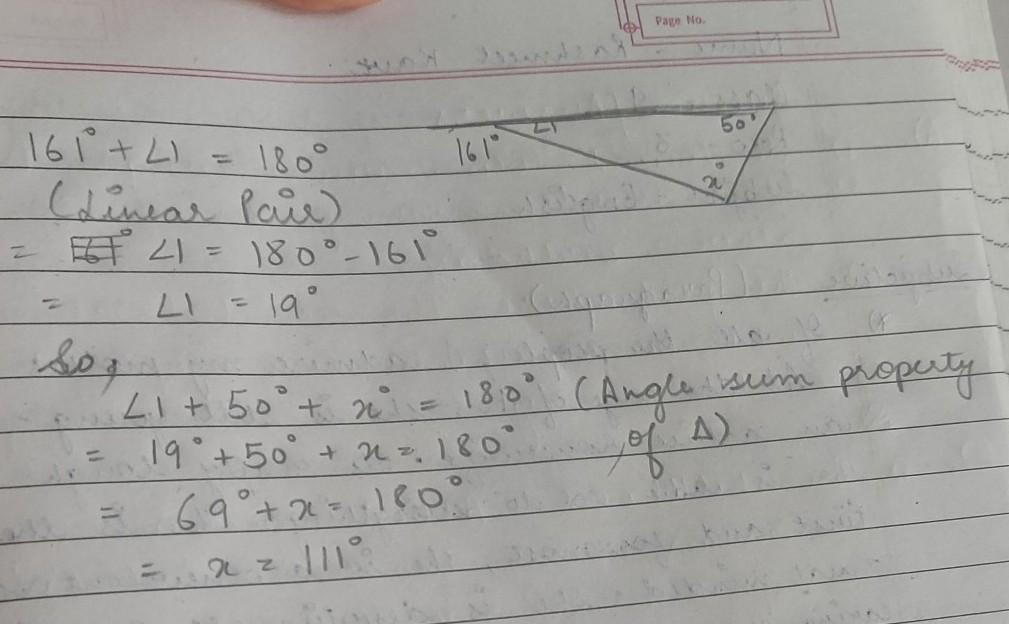 Page No.
161° + ∠1 = 180°
161° ∠1 50°
x°
(Linear Pair)
= ∠1 = 180° - 161°
= ∠1 = 19°
So,
∠1 + 50° + x° = 180° (Angle sum property
of Δ)
= 19° + 50° + x = 180°
= 69° + x = 180°
= x = 111°